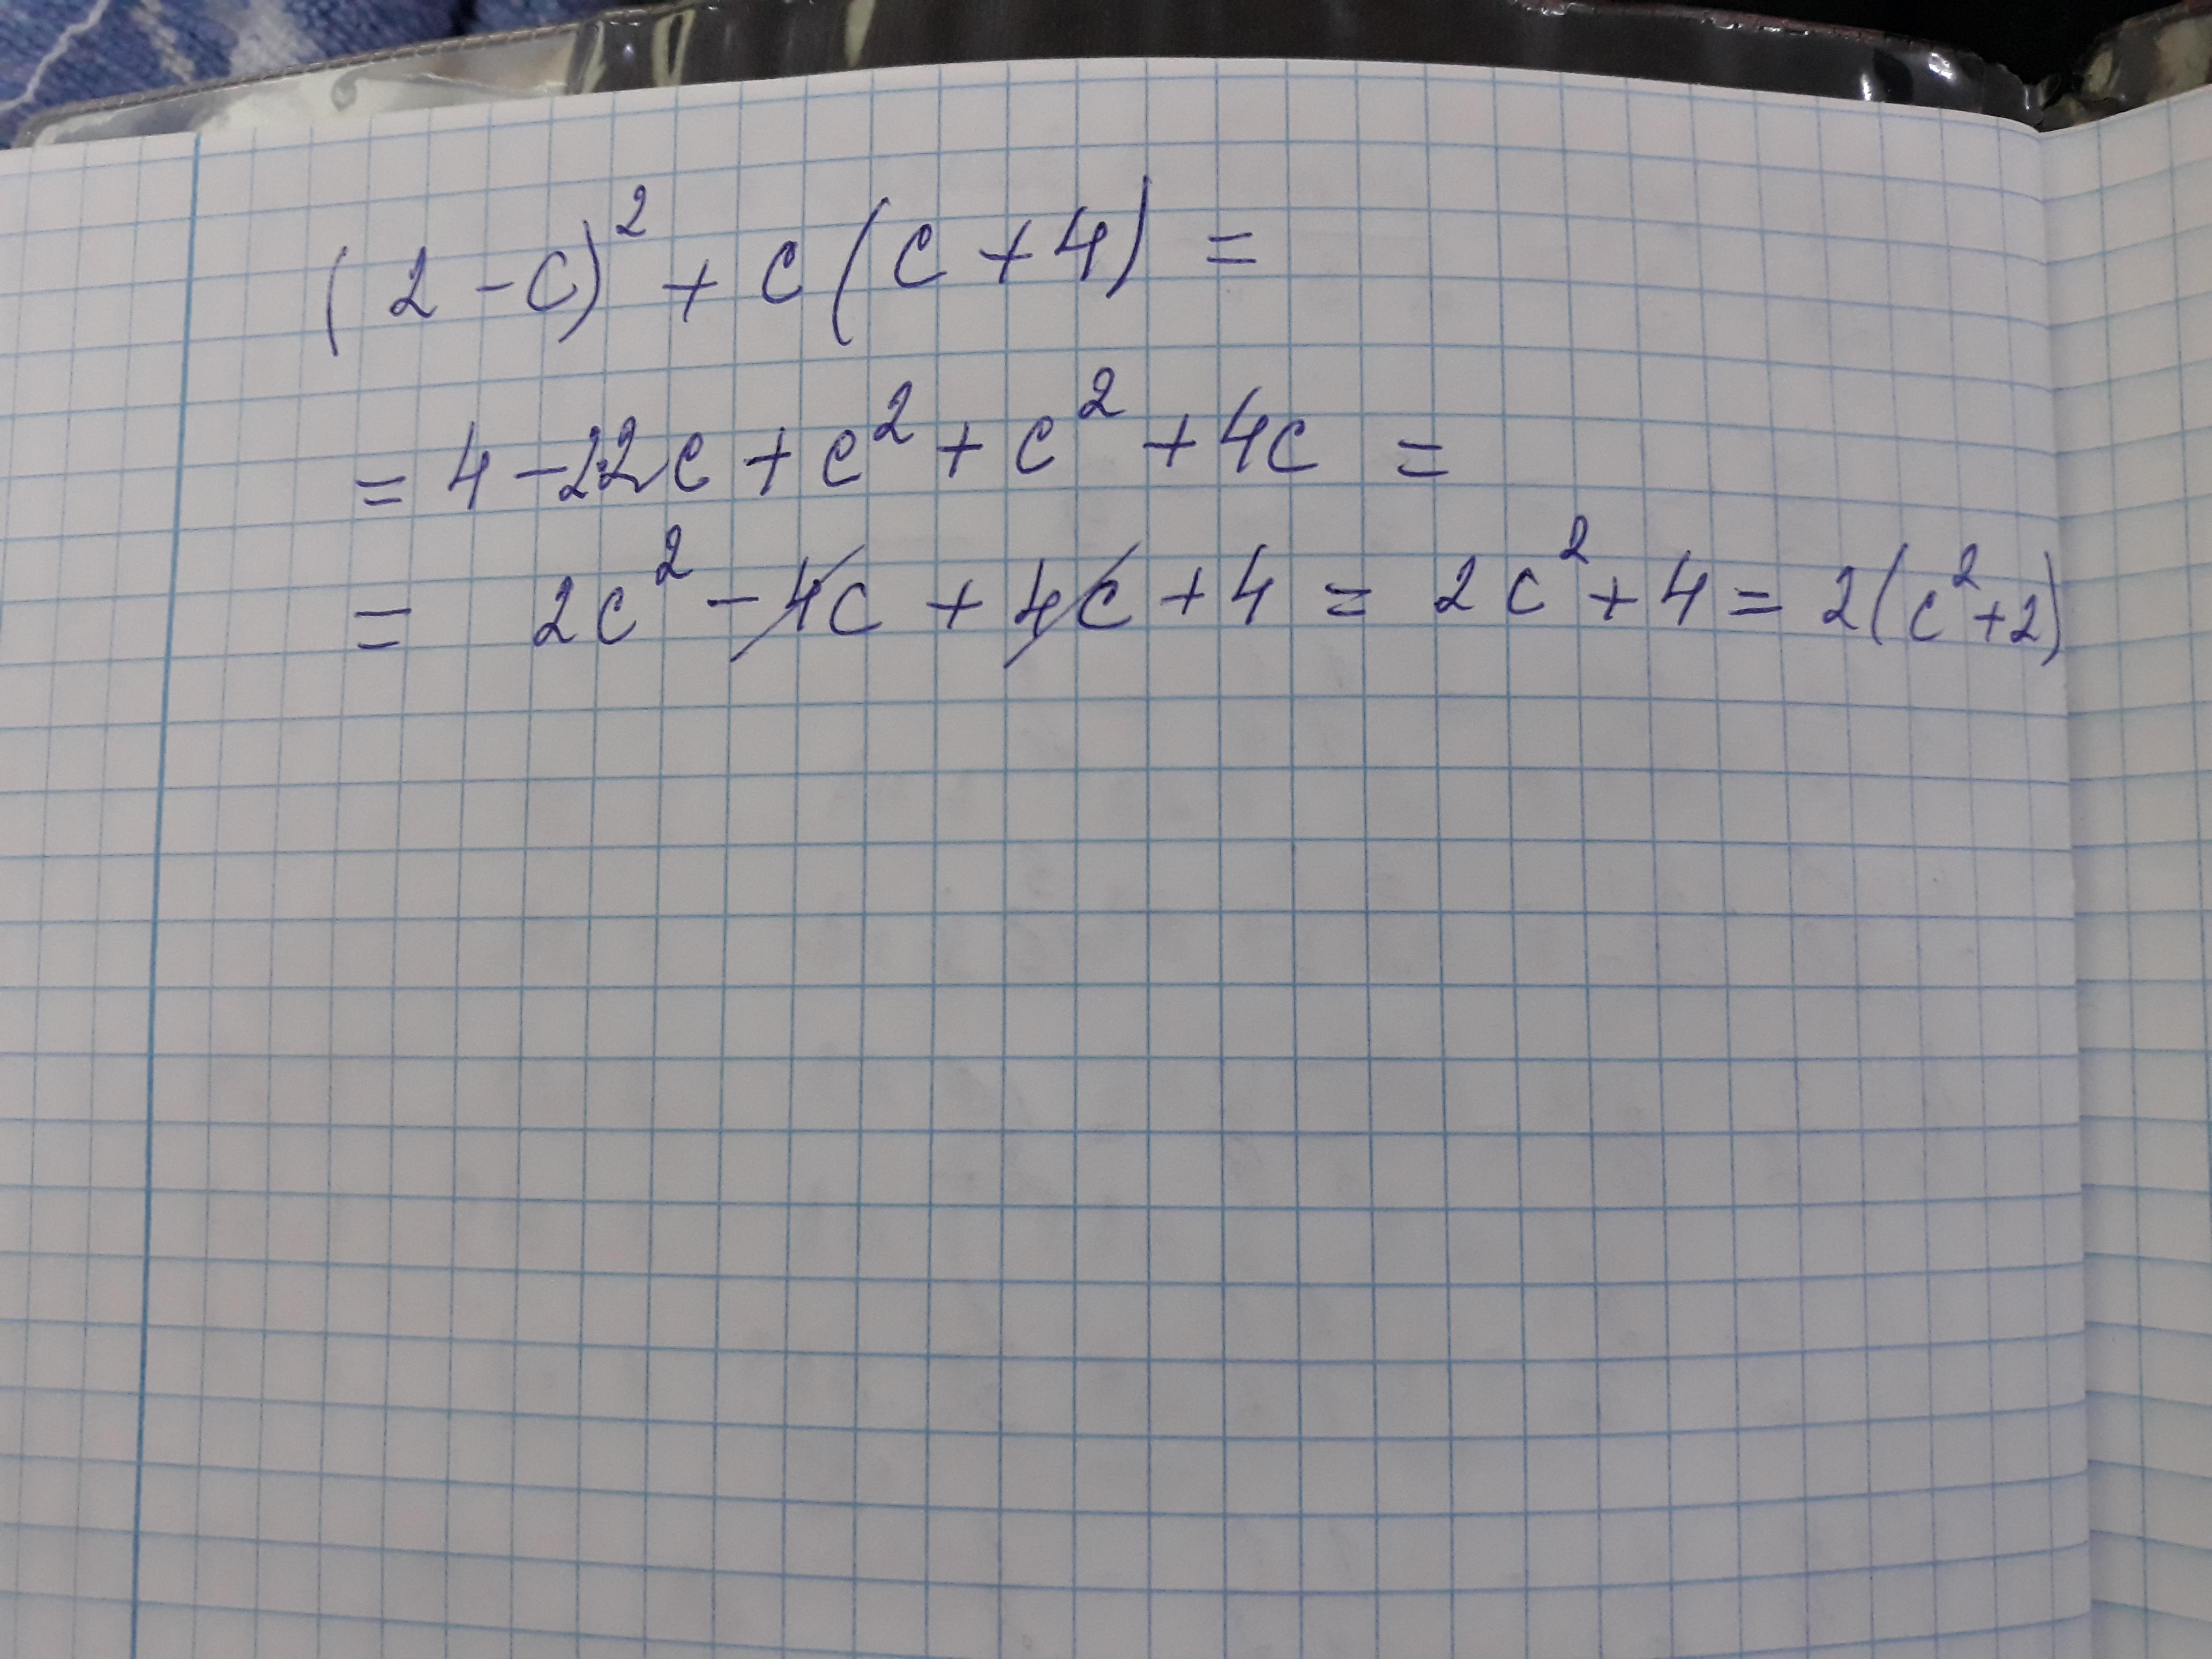 (2-c)² + c(c+4) =
= 4 - 2·2c + c² + c² + 4c =
= 2c² - 4c + 4c + 4 = 2c² + 4 = 2(c²+2)